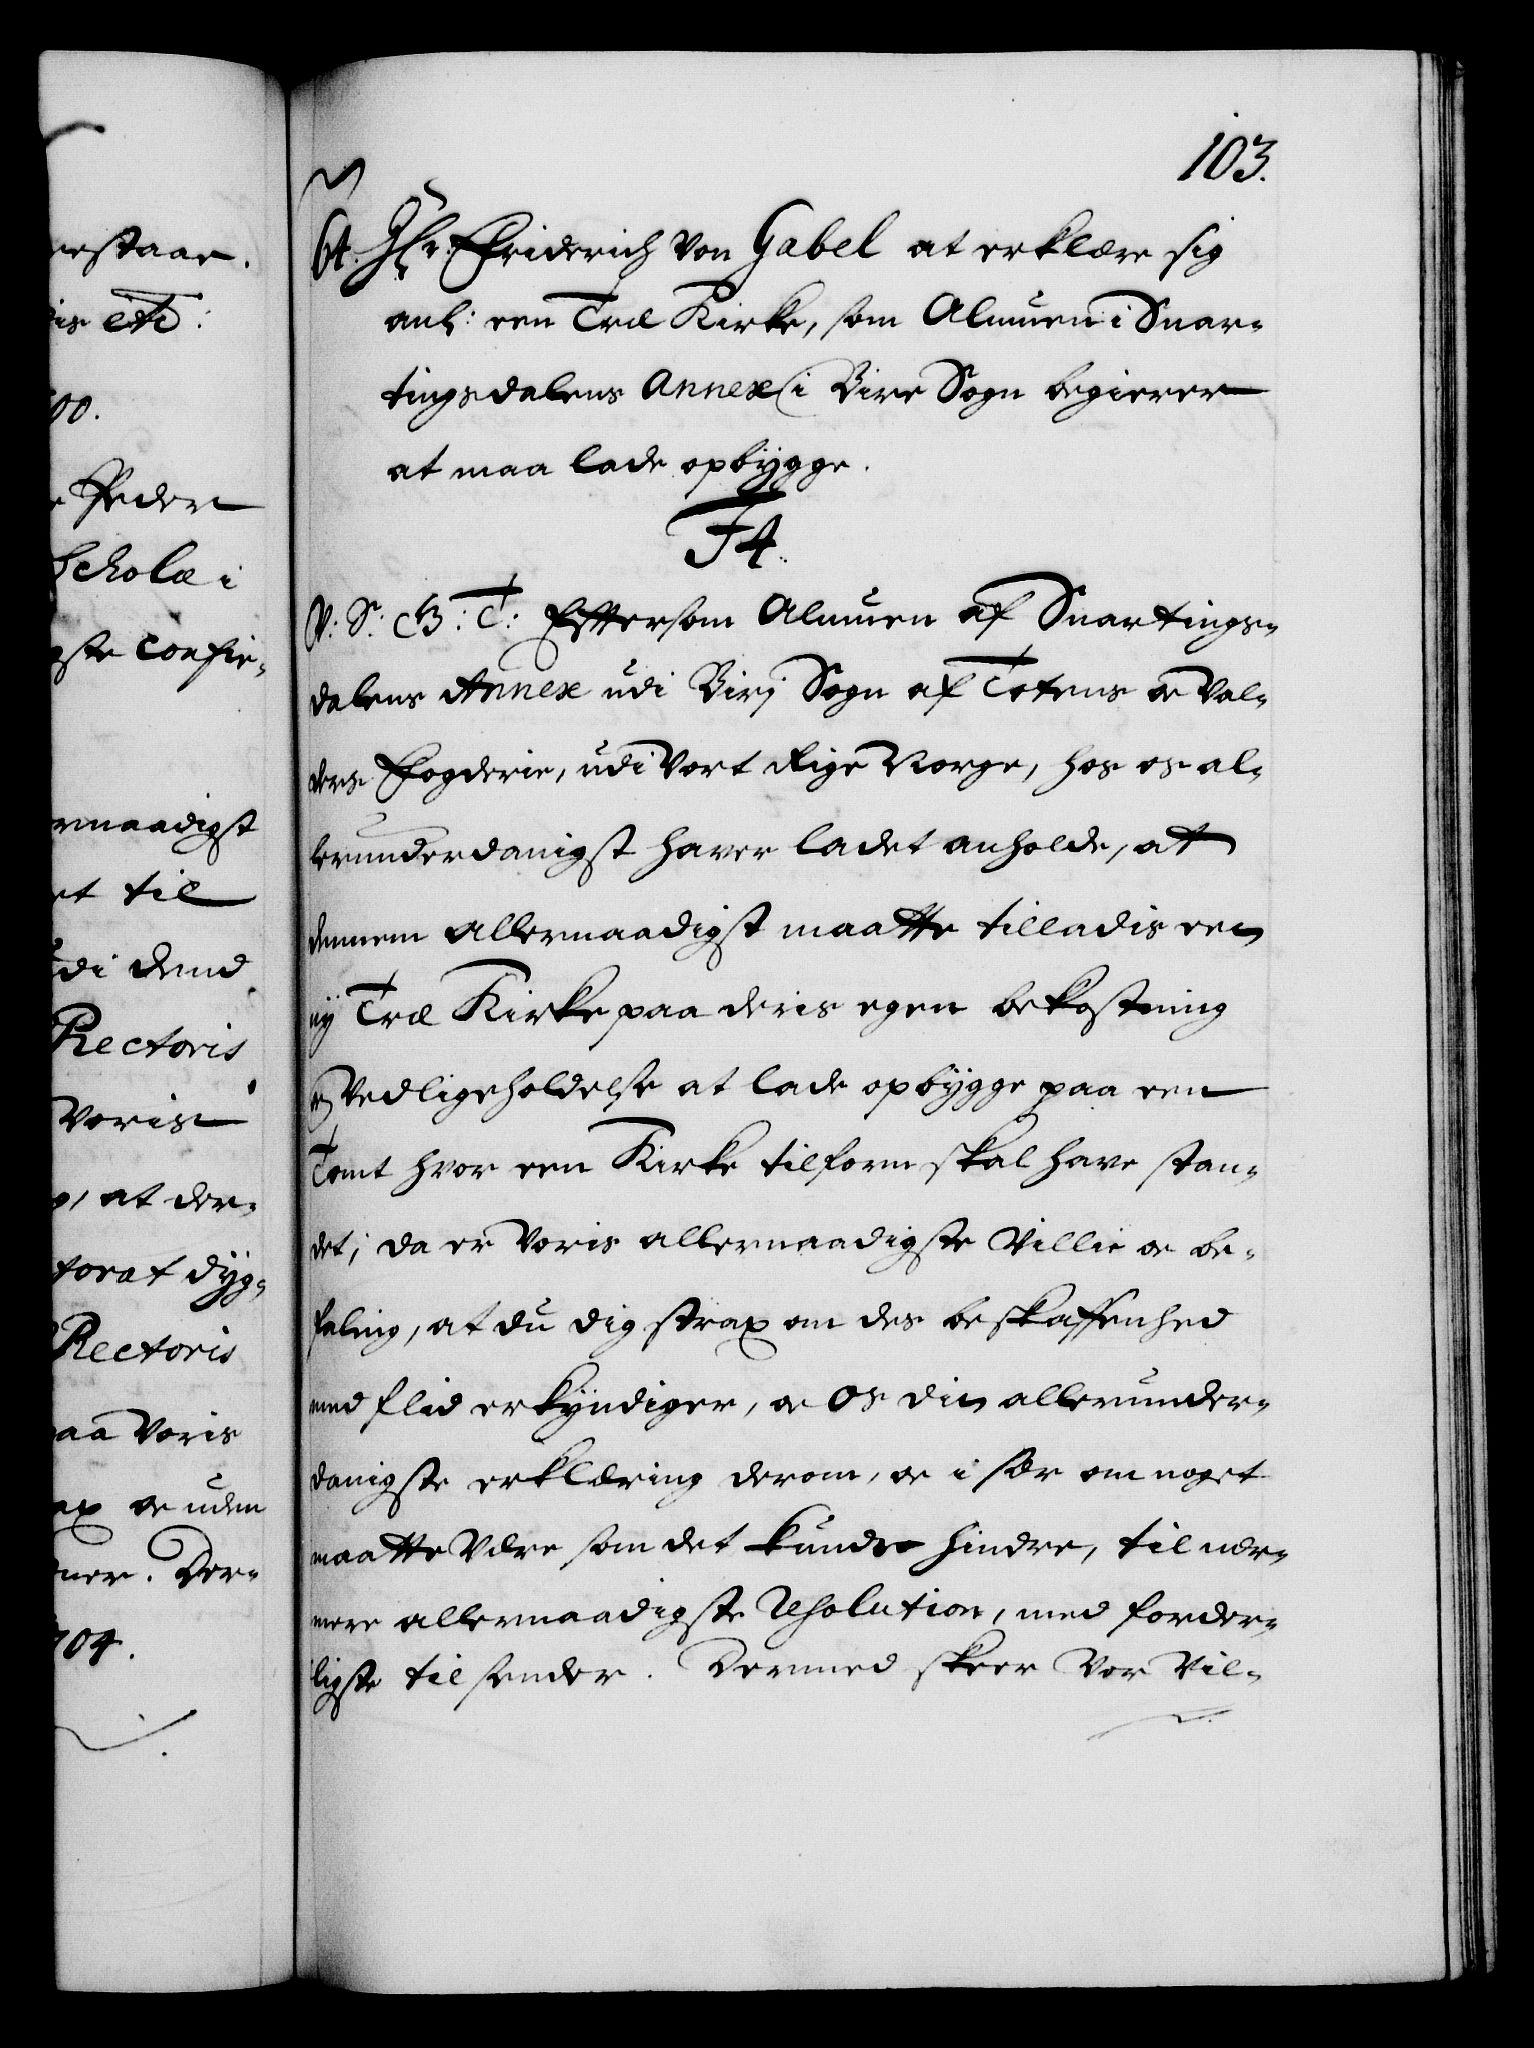 103.
64. Hr. Friderich von Gabel at erklære sig
anl: een Træ Kirke, som Almuen i Snar-
tingsdalens Annex i Bire Sogn begierer
at maa lade opbygge.
F4.
V: S: G: T: Eftersom Almuen af Snartings-
dalens Annex udi Biri Sogn af Totens oc Val-
ders Fogderie, udi Vort Rige Norge, hos os al-
lerunderdanigst haver ladet anholde, at
dennem allernaadigst maatte tilladis een
ny Træ Kirke paa deris egen bekostning
og Vedligeholdelse at lade opbygge paa een
Tomt hvor een Kirke tilforn skal have stan-
det; da er Voris allernaadigste Villie oc be-
faling, at du dig strax om des beskaffenhed
med flid erkyndiger, oc Os din allerunder-
danigste erklæring derom, oc i sær om noget
maatte Være som det kunde hindre, til nær-
mere allernaadigste Resolution, med forder-
ligste tilsender. Dermed skeer Vor Vil-
erstaar.
is etc:
00.
Peder
Scholæ i
gste Confir-
ernaadigst
et til
udi dend
Rectoris
Voris
, at der-
torat dyg-
Rectoris
paa Voris
ax oc uden
ner. Der-
704.